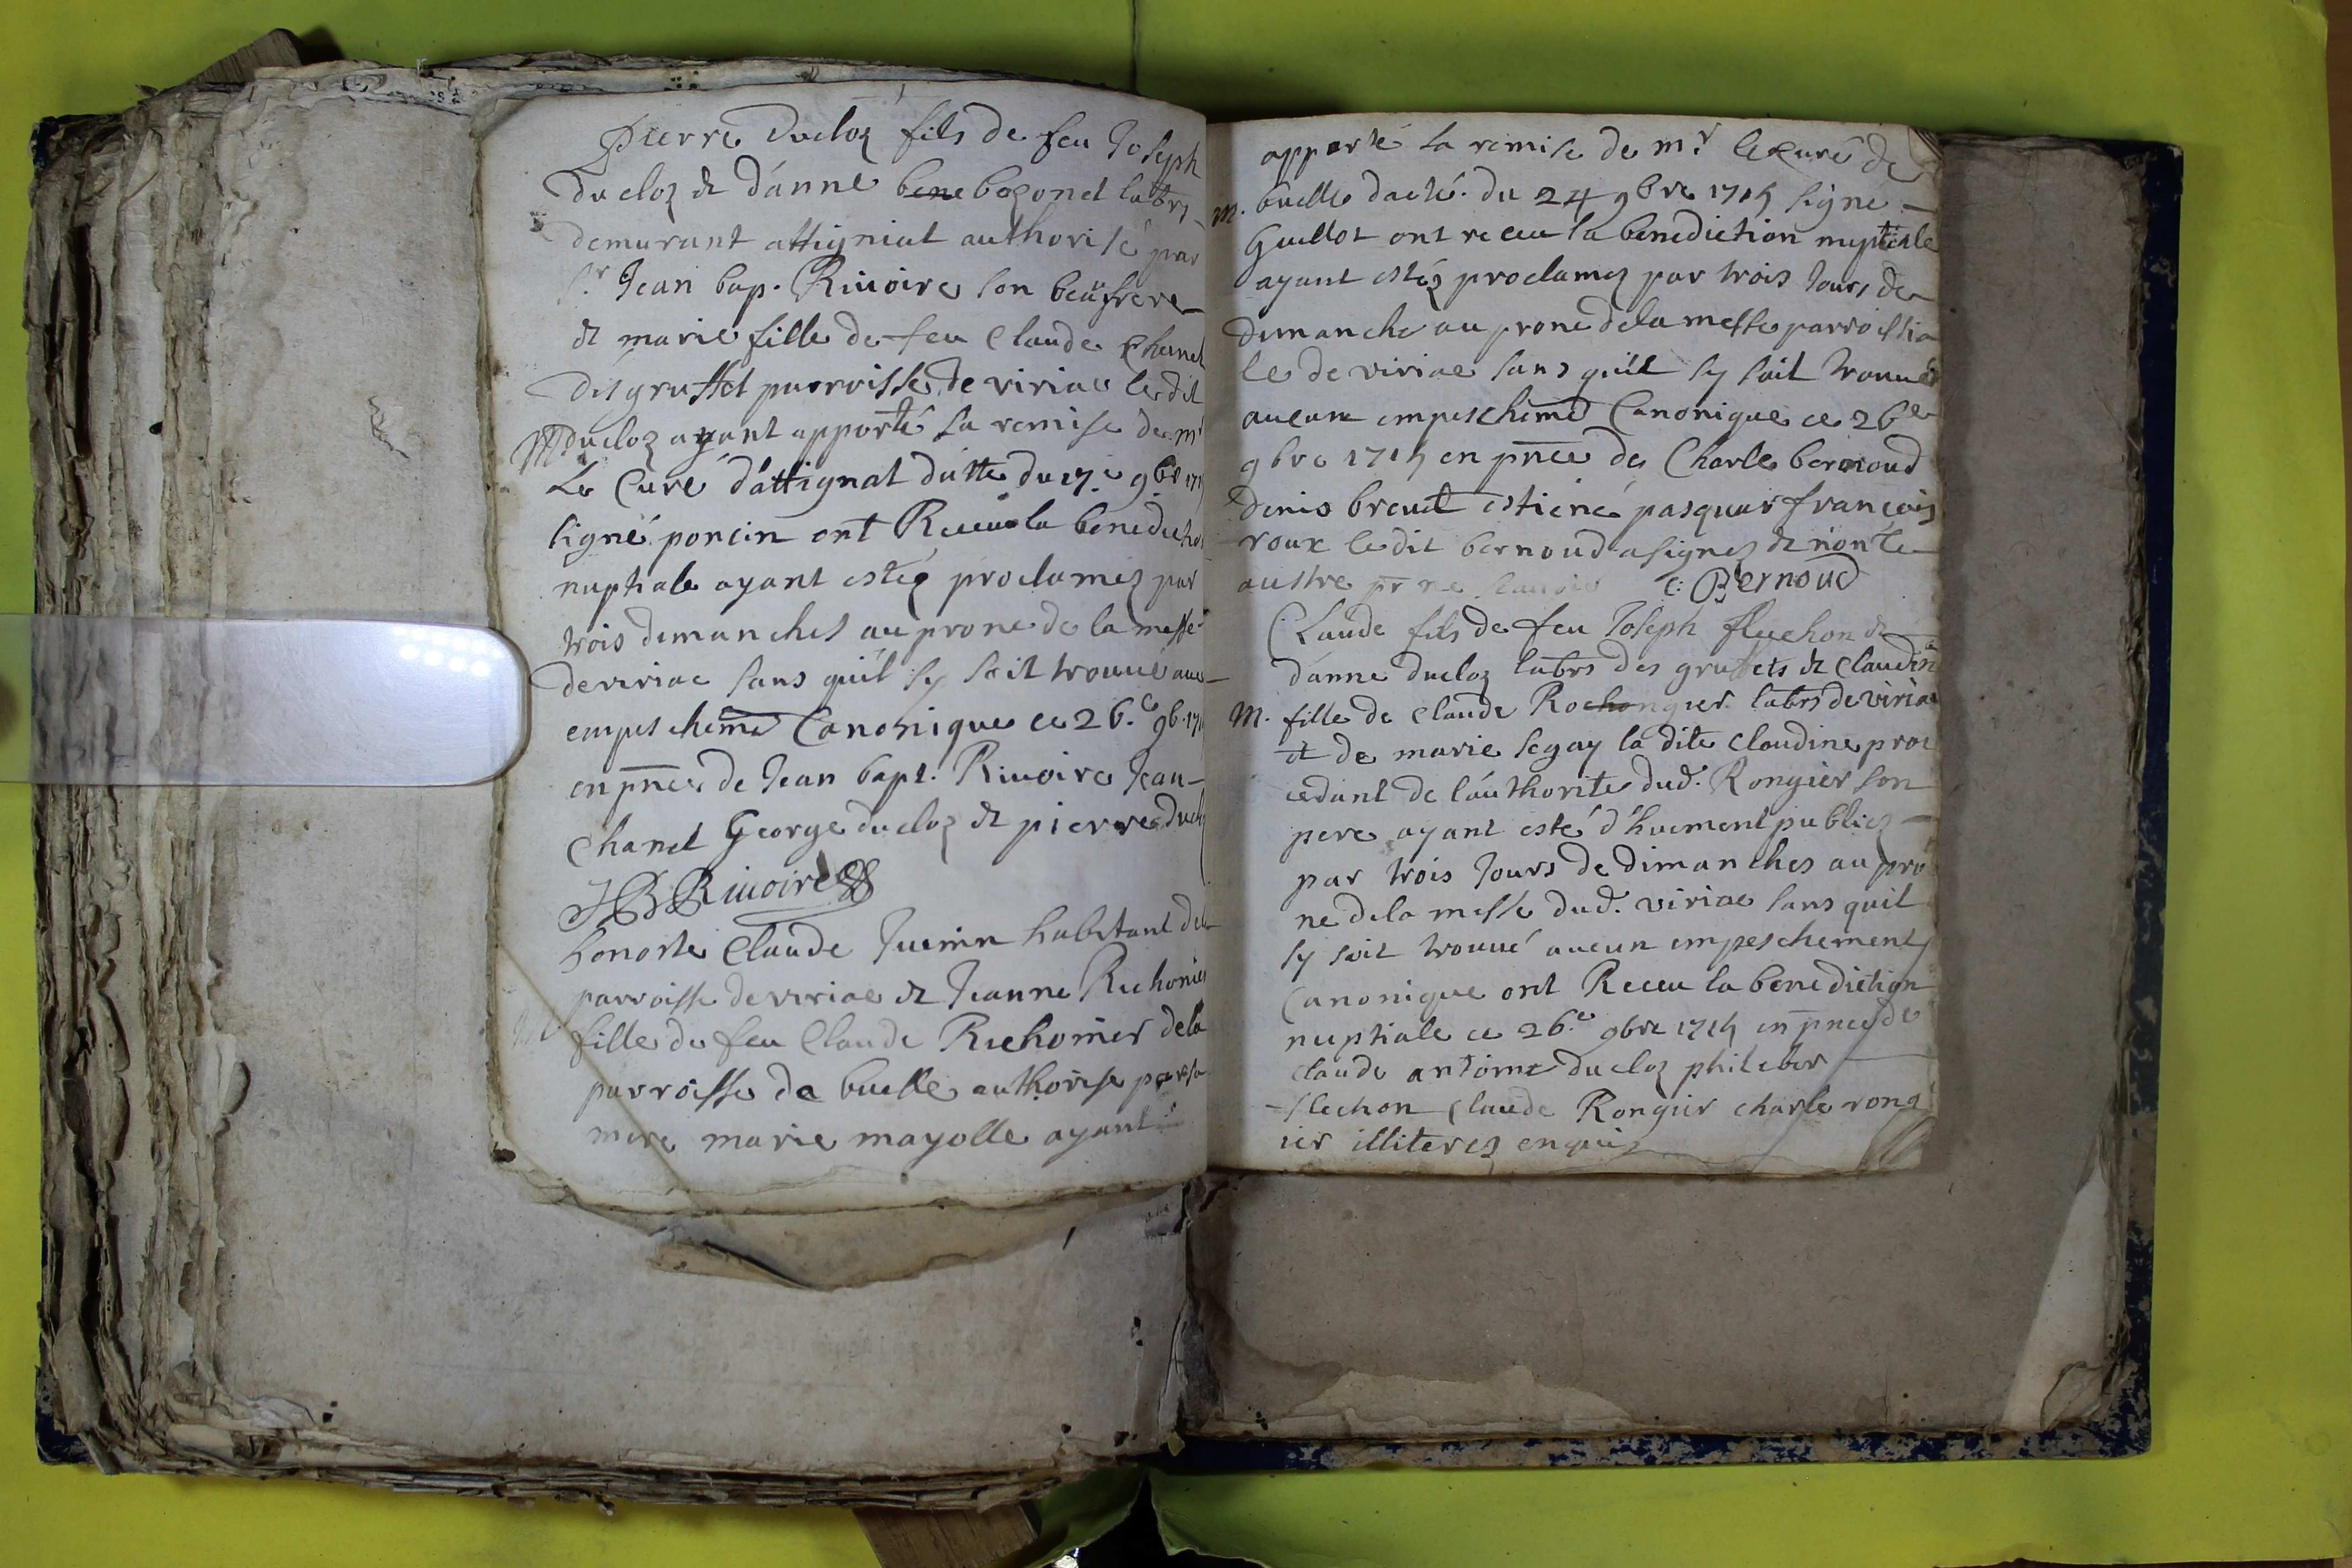 Pierre Ducloz fils de feu Joseph
Ducloz & d'anne bene bozonet labrs
demurant attigniat authorisé par
Sr Jean bap. Riuoire son beaufrere
& marie fille de feu Claude Chanel
des gruffet parroisse de viriac ledit
M ducloz ayant apporté la remise de mr
Le Curé d'attignat datte du 17.e 9bre
signé poncin ont Receu la benedictio
nuptiale ayant estéz proclamez par
trois dimanches au prone de la messe
de viriac sans quil sy soit trouué auc
empeschemē Canonique ce 26.e 9b.
en pn̄ce de Jean bapt. Riuoire Jean
Chanel George ducloz & pierre Ducl
JB Riuoire
honorte Claude Juenin habitant de la
parroisse de viriac & Jeanne Richonier
fille de feu Claude Richonier de la
parroisse de buelle authorise par sa
mere marie mayolle ayant
apporté la remise de mr le Curé de
M. buelle dacté du 24 9bre 1715 signe
Guillot ont receu la benediction nuptiale
ayant estéz proclamez par trois Jours de
dimanche au prone de la messe parroissia
le de viriac sans quil sy soit trouué
aucun empeschemē Canonique ce 26e
9bre 1715 en pn̄ce de Charle bernoud
denis breuet estiene pasquier françois
roux ledit bernoud a signez & non le
austre pr ne C: Bernoud
Claude fils de feu Joseph fluchon &
d'anne ducloz labrs des gruffets & Claudin
M. fille de Claude Rochongier labrs de viriac
& de marie legay la dite Claudine proc
cedant de l'authorite dud. Rongier son
pere ayant esté d'huement publiez
par trois Jours de dimanches au pro
ne de la messe dud. viriac sans quil
sy soit trouué aucun empeschement
Canonique ont Receu la benediction
nuptiale ce 26.e 9bre 1715 en pn̄ce de
Claude antoine ducloz phileber
flechon Claude Rongier charle rong
ier illiterez enquis